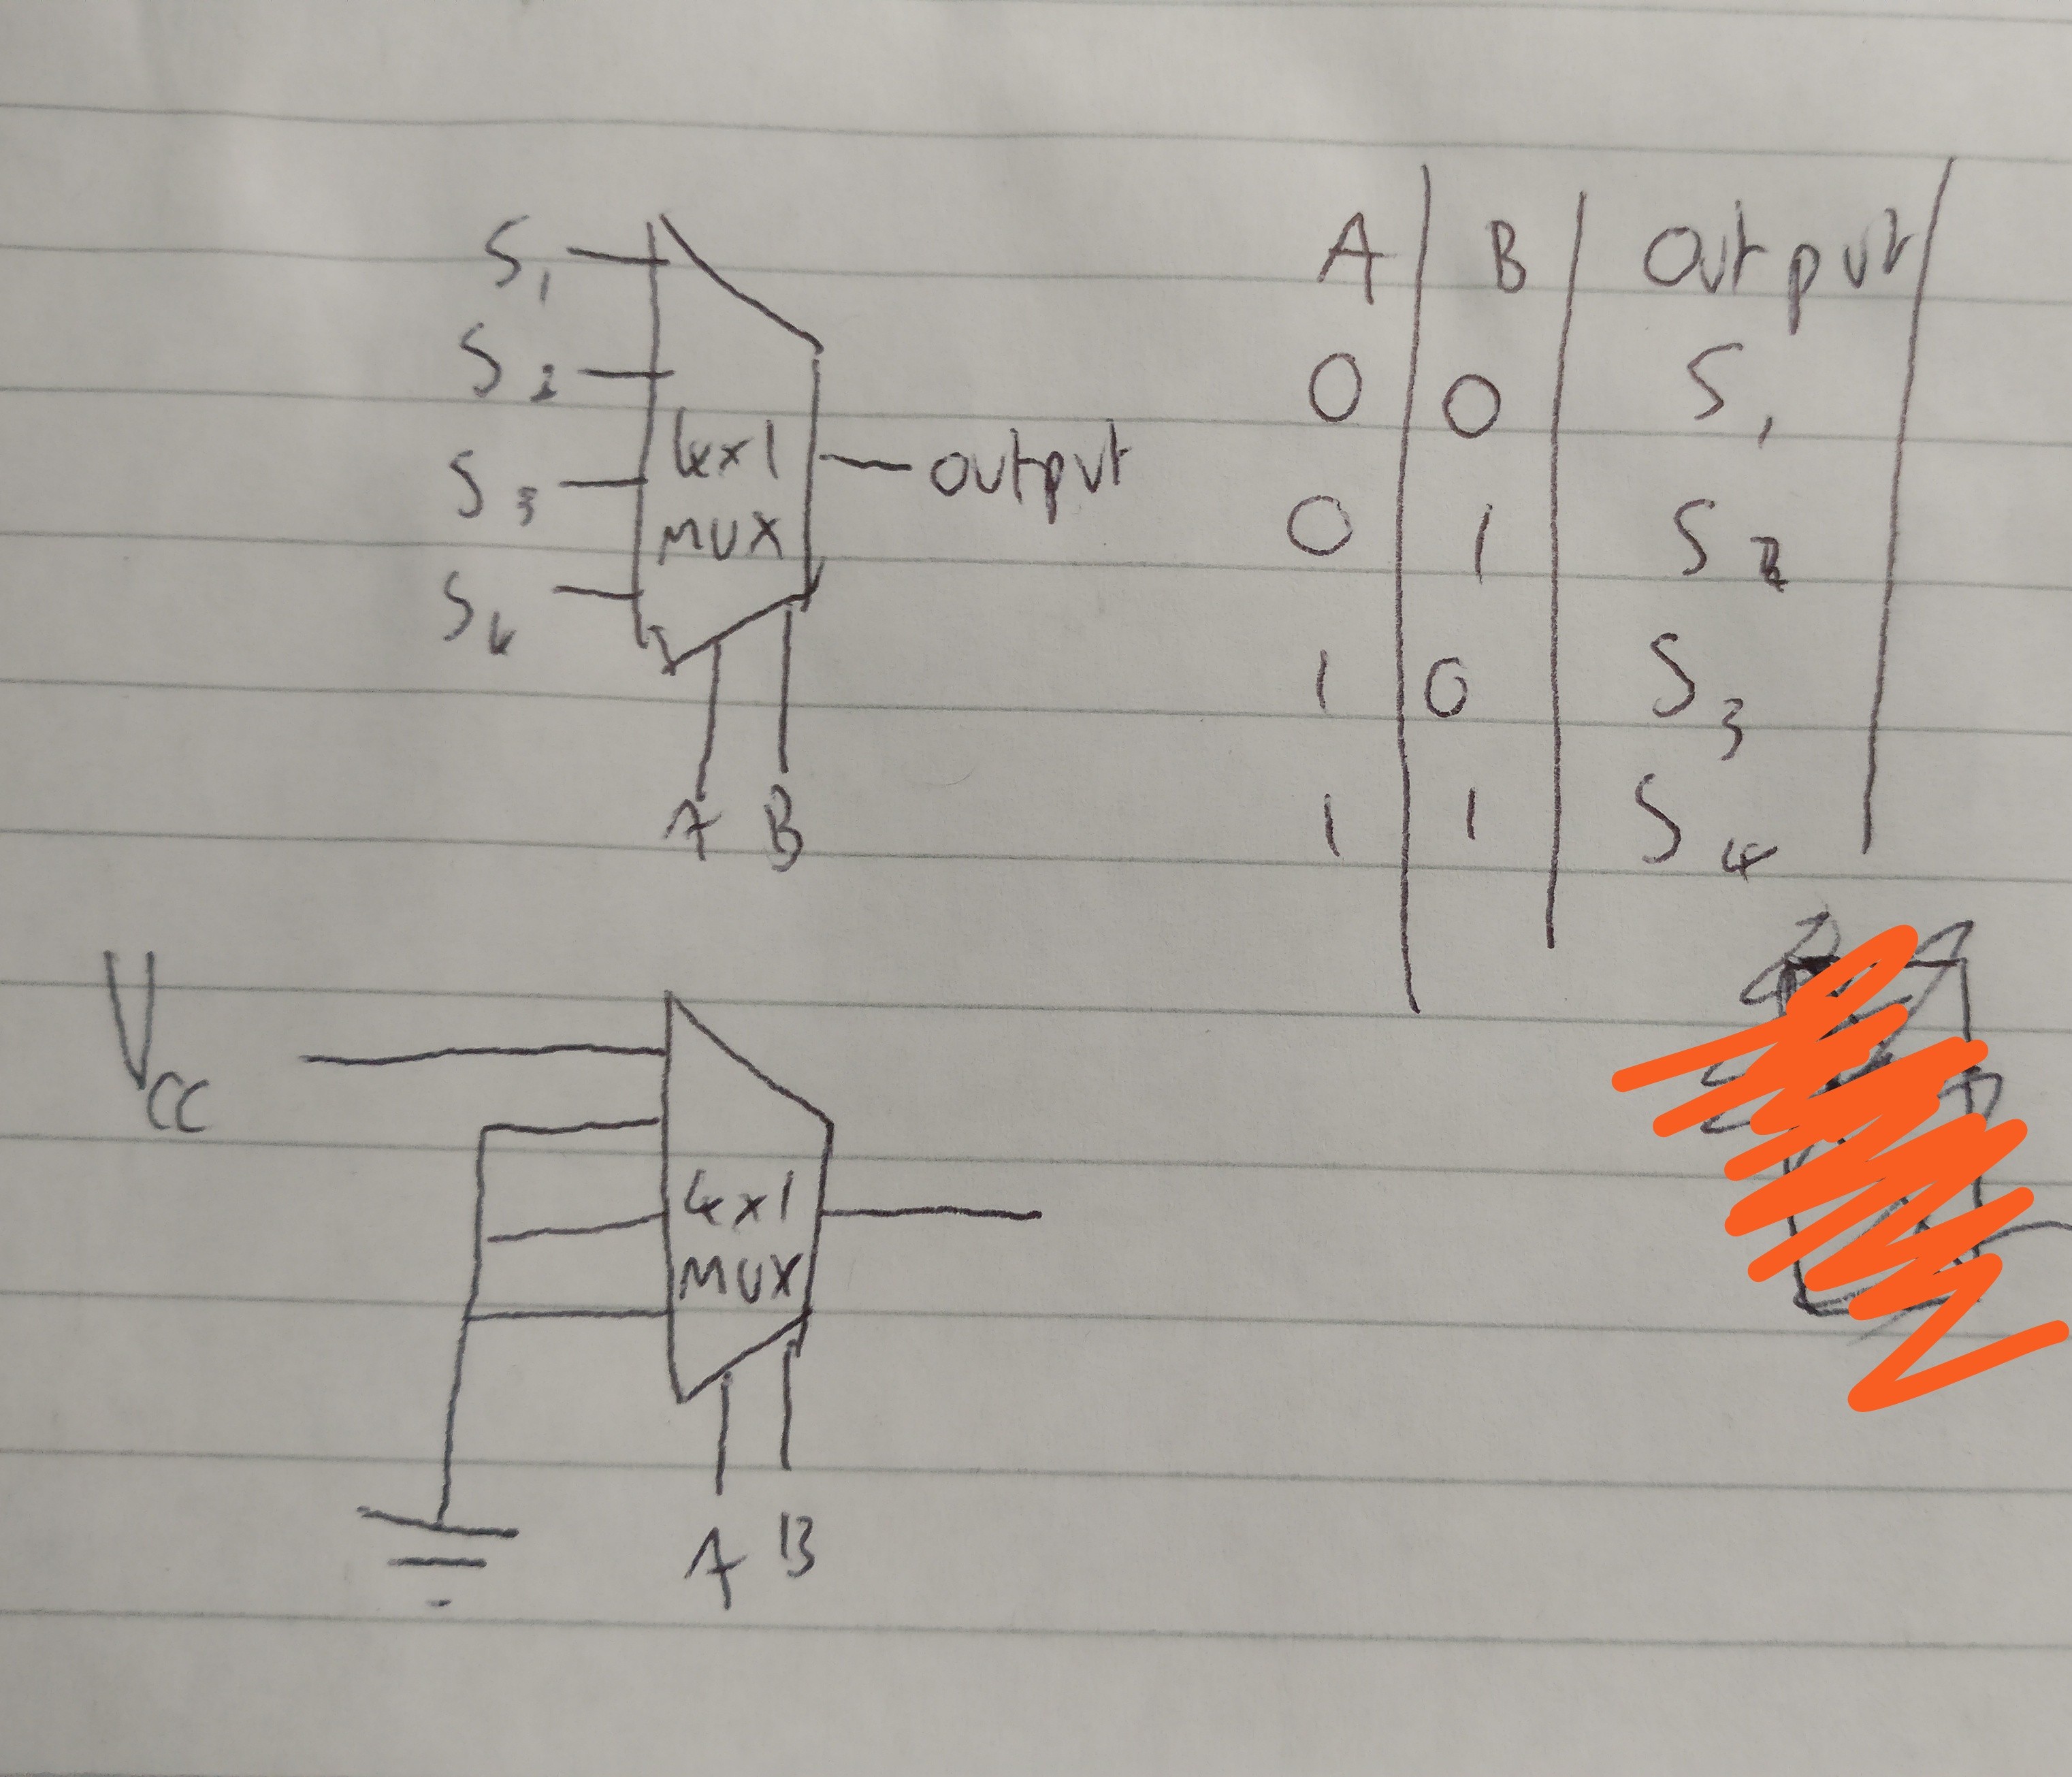 S1
S2
S3
S4
4x1
MUX
output
A B
A B Output
0 0 S1
0 1 S2
1 0 S3
1 1 S4
VCC
4x1
MUX
A B